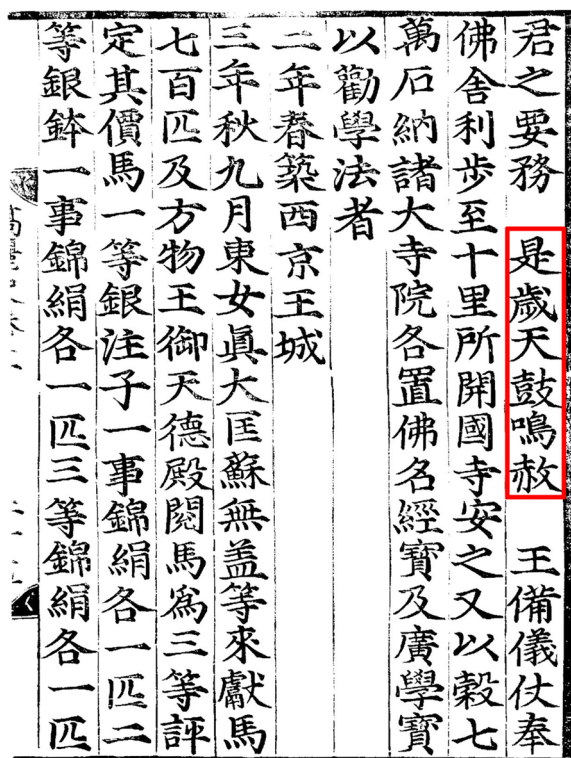 君之要務 是歲天鼓鳴赦 王備儀仗奉
佛舍利步至十里所開國寺安之又以穀七
萬石納諸大寺院各置佛名經寶及廣學寶
以勸學法者
二年春築西京王城
三年秋九月東女眞大匡蘇無盖等來獻馬
七百匹及方物王御天德殿閱馬爲三等評
定其價馬一等銀注子一事錦絹各一匹二
等銀鉢一事錦絹各一匹三等錦絹各一匹